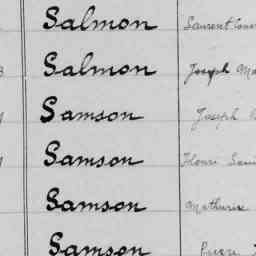 Salmon Laurent
Salmon Joseph
Samson Joseph
Samson Henri
Samson Mathurin
Samson Pierre